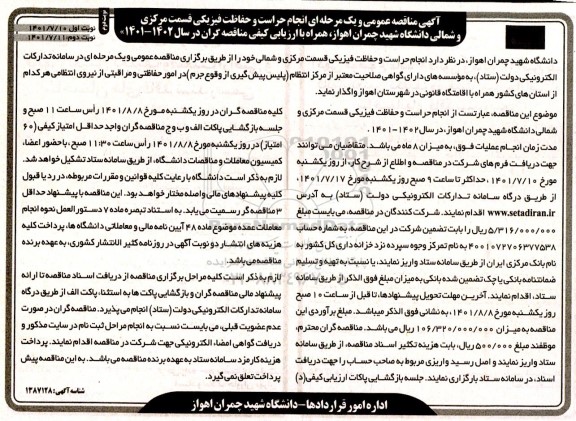 آگهی مناقصه عمومی و یک مرحله ای انجام حراست و حفاظت فیزیکی قسمت مرکزی
و شمالی دانشگاه شهید چمران اهواز، همراه با ارزیابی کیفی مناقصه گران در سال ۱۴۰۲-۱۴۰۱»
نوبت اول ۱۴۰۱/۷/۱۰
نوبت دوم: ۱۴۰۱/۷/۱۱
دانشگاه شهید چمران اهواز، در نظر دارد انجام حراست و حفاظت فیزیکی قسمت مرکزی و شمالی خود را از طریق برگزاری مناقصه عمومی ویک مرحله ای در سامانه تدارکات
الکترونیکی دولت (ستاد)، به مؤسسه های دارای گواهی صلاحیت معتبر از مرکز انتظام (پلیس پیش گیری از وقوع جرم) در امور حفاظتی و مراقبتی از نیروی انتظامی هر کدام
از استان های کشور همراه با اقامتگاه قانونی در شهرستان اهواز واگذار نماید.
موضوع این مناقصه، عبارتست از انجام حراست و حفاظت فیزیکی قسمت مرکزی و
شمالی دانشگاه شهید چمران اهواز، در سال ۱۴۰۲-۱۴۰۱.
مدت زمان انجام عملیات فوق، به میزان ۸ ماه می باشد. متقاضیان می توانند
جهت دریافت فرم های شرکت در مناقصه و اطلاع از شرح کار، از روز یکشنبه
مورخ ۱۴۰۱/۷/۱۰، حداکثر تا ساعت ۹ صبح روز یکشنبه مورخ ۱۴۰۱/۷/۱۷،
از طریق درگاه سامانه تدارکات الکترونیکی دولت (ستاد) به آدرس
www.setadiran.ir اقدام نمایند. شرکت کنندگان در مناقصه، می بایست مبلغ
۵/۳۱۶/۰۰۰/۰۰۰ ریال را بابت تضمین شرکت در این مناقصه به شماره حساب
۴۰۰۱۰۷۲۷۰۶۳۷۷۵۳۸ به نام تمرکز وجوه سپرده نزد خزانه داری کل کشور به
نام بانک مرکزی ایران از طریق سامانه ستاد واریز نمایند، یا نسبت به تهیه و تسلیم
ضمانتنامه بانکی یا چک تضمین شده بانکی به میزان مبلغ فوق الذکر از طریق سامانه
ستاد، اقدام نمایند. آخرین مهلت تحویل پیشنهادها، تا قبل از ساعت ۱۰ صبح
روز یکشنبه مورخ ۱۴۰۱/۸/۸، به نشانی فوق الذکر میباشد. مبلغ برآوردی این
مناقصه به میزان ۱۰۶/۳۲۰/۰۰۰/۰۰۰ ریال می باشد. مناقصه گران محترم،
موظفند مبلغ ۵۰۰/۰۰۰ ریال، بابت هزینه تکثیر اسناد مناقصه، از طریق سامانه
ستاد واریز نمایند و اصل رسید واریزی مربوط به صاحب حساب را جهت دریافت
اسناد، در سامانه ستاد بارگزاری نمایند. جلسه بازگشایی پاکات ارزیابی کیفی (د)
کلیه مناقصه گران در روز یکشنبه مورخ ۱۴۰۱/۸/۸ رأس ساعت ۱۱ صبح و
جلسه بازگشایی پاکات الف و ب و ج مناقصه گران واجد حداقل امتیاز کیفی (۶۰
امتیاز) در روز یکشنبه مورخ ۱۴۰۱/۸/۸ رأس ساعت ۱۱:۳۰ صبح، با حضور اعضاء
کمیسیون معاملات و مناقصات دانشگاه، از طریق سامانه ستاد تشکیل خواهد شد.
لازم به ذکر است دانشگاه با رعایت کلیه قوانین و مقررات مربوطه، در رد یا قبول
کلیه پیشنهادهای مالی واصله مختار خواهد بود. این مناقصه با پیشنهاد حداقل
۳ مناقصه گر رسمیت می یابد. به استناد تبصره ماده ۷ دستور العمل نحوه انجام
معاملات عمده موضوع ماده ۴۸ آیین نامه مالی و معاملاتی دانشگاه ها، پرداخت کلیه
هزینه های انتشار دو نوبت آگهی در روزنامه کثیر الانتشار کشوری، به عهده برنده
مناقصه می باشد.
لازم به ذکر است کلیه مراحل برگزاری مناقصه از دریافت اسناد مناقصه تا ارائه
پیشنهاد مالی مناقصه گران و بازگشایی پاکت ها به استثناء پاکت الف از طریق درگاه
سامانه تدارکات الکترونیکی دولت (ستاد) انجام می پذیرد. مناقصه گران در صورت
عدم عضویت قبلی، می بایست نسبت به انجام مراحل ثبت نام در سایت مذکور و
دریافت گواهی امضاء الکترونیکی جهت شرکت در مناقصه اقدام نمایند. پرداخت
هزینه کارمزد سامانه ستاد به عهده برنده مناقصه می باشد. به این مناقصه پیش
پرداخت تعلق نمی گیرد.
شناسه آگهی: ۱۳۸۷۱۲۸
اداره امور قراردادها - دانشگاه شهید چمران اهواز